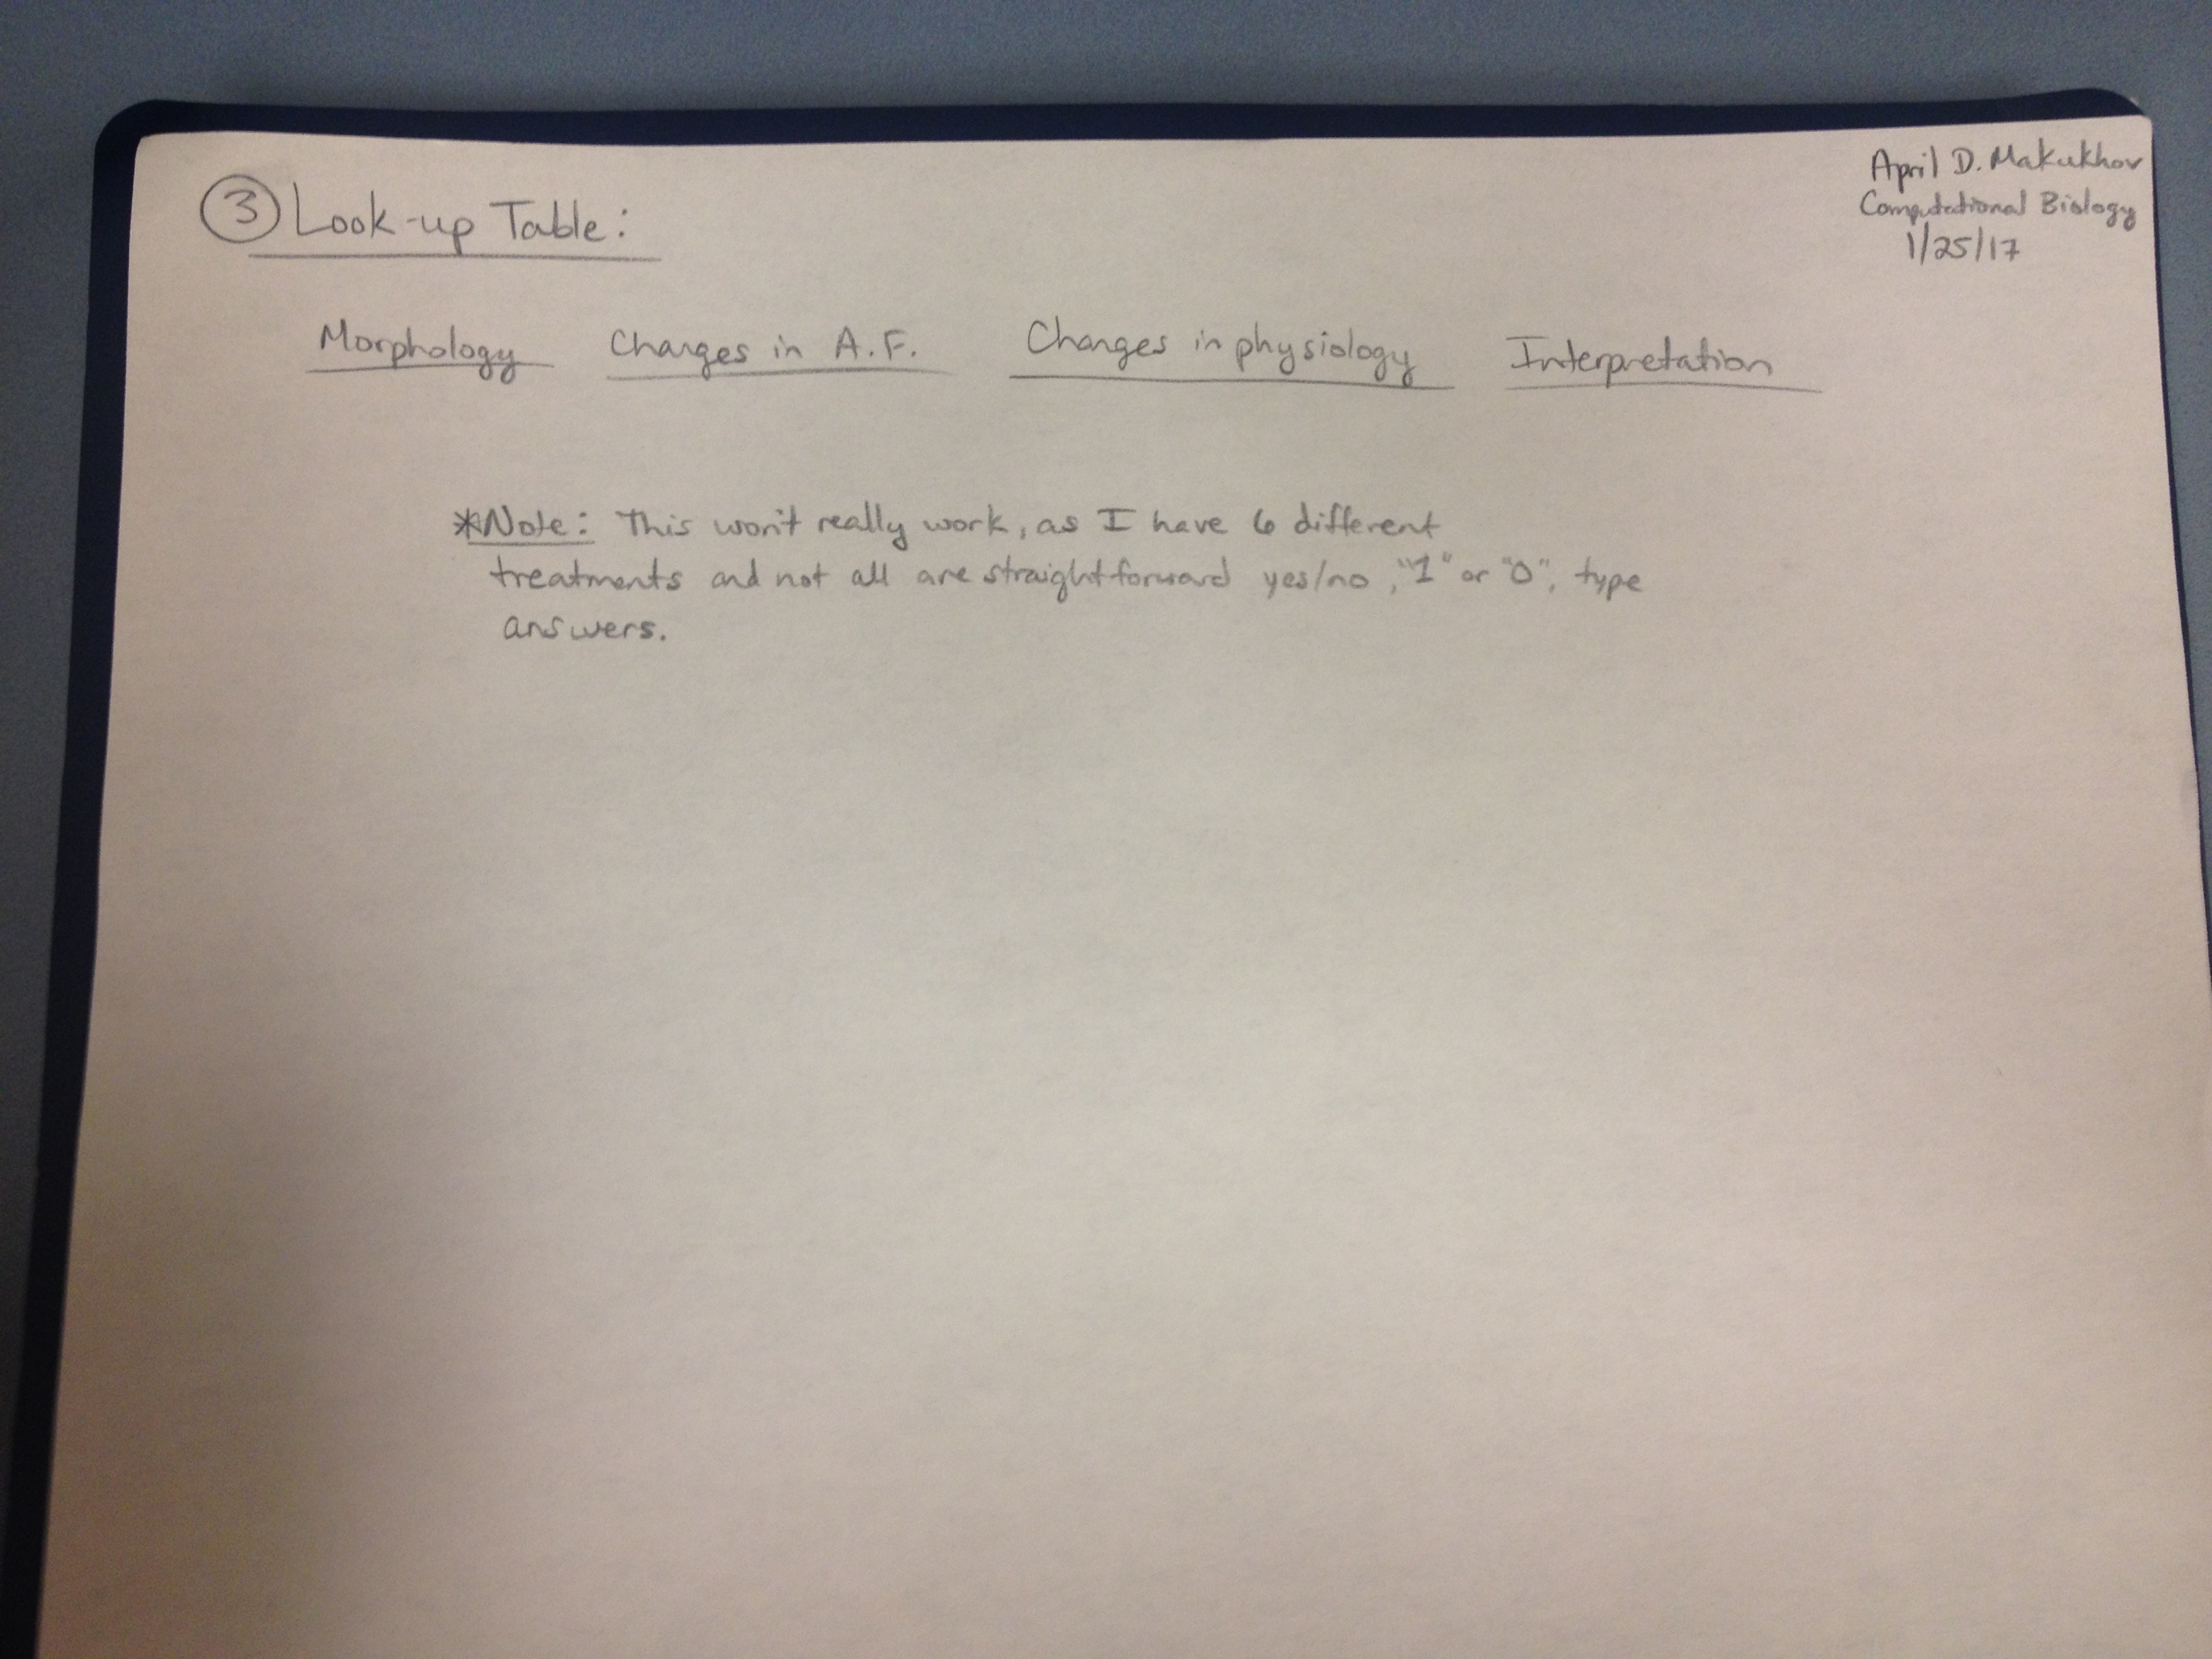 April D. Makukhov
Computational Biology
1/25/17
③ Look-up Table:
Morphology Changes in A.F. Changes in physiology Interpretation
*Note: This won't really work, as I have 6 different
treatments and not all are straightforward yes/no, "1" or "0", type
answers.